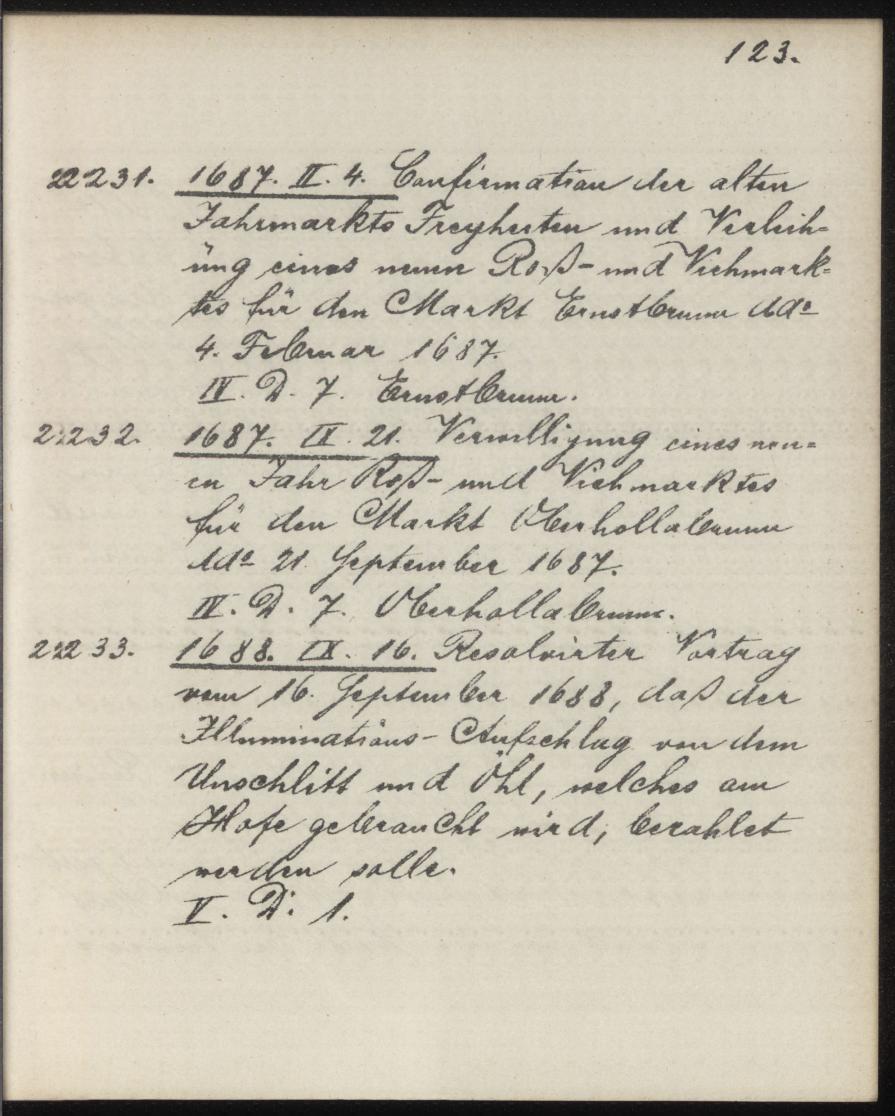 123.
22231. 1687. II. 4. Confirmation der alten
Jahrmarkts Freyheiten und Verleih-
ung eines neuen Roß- und Viehmark-
tes für den Markt Ernstbrunn ddo
4. Februar 1687.
IV. D. 7. Ernstbrunn.
22232. 1687. IX. 21. Verwilligung eines neu-
en Jahr Roß- und Viehmarktes
für den Markt Oberhollabrunn
ddo 21. September 1687.
IV. D. 7. Oberhollabrunn.
22233. 1688. IX. 16. Resolvirter Vortrag
vom 16. September 1688, daß der
Illuminations-Aufschlag von dem
Unschlitt und Öhl, welches am
Hofe gebraucht wird, bezahlet
werden solle.
V. D. 1.